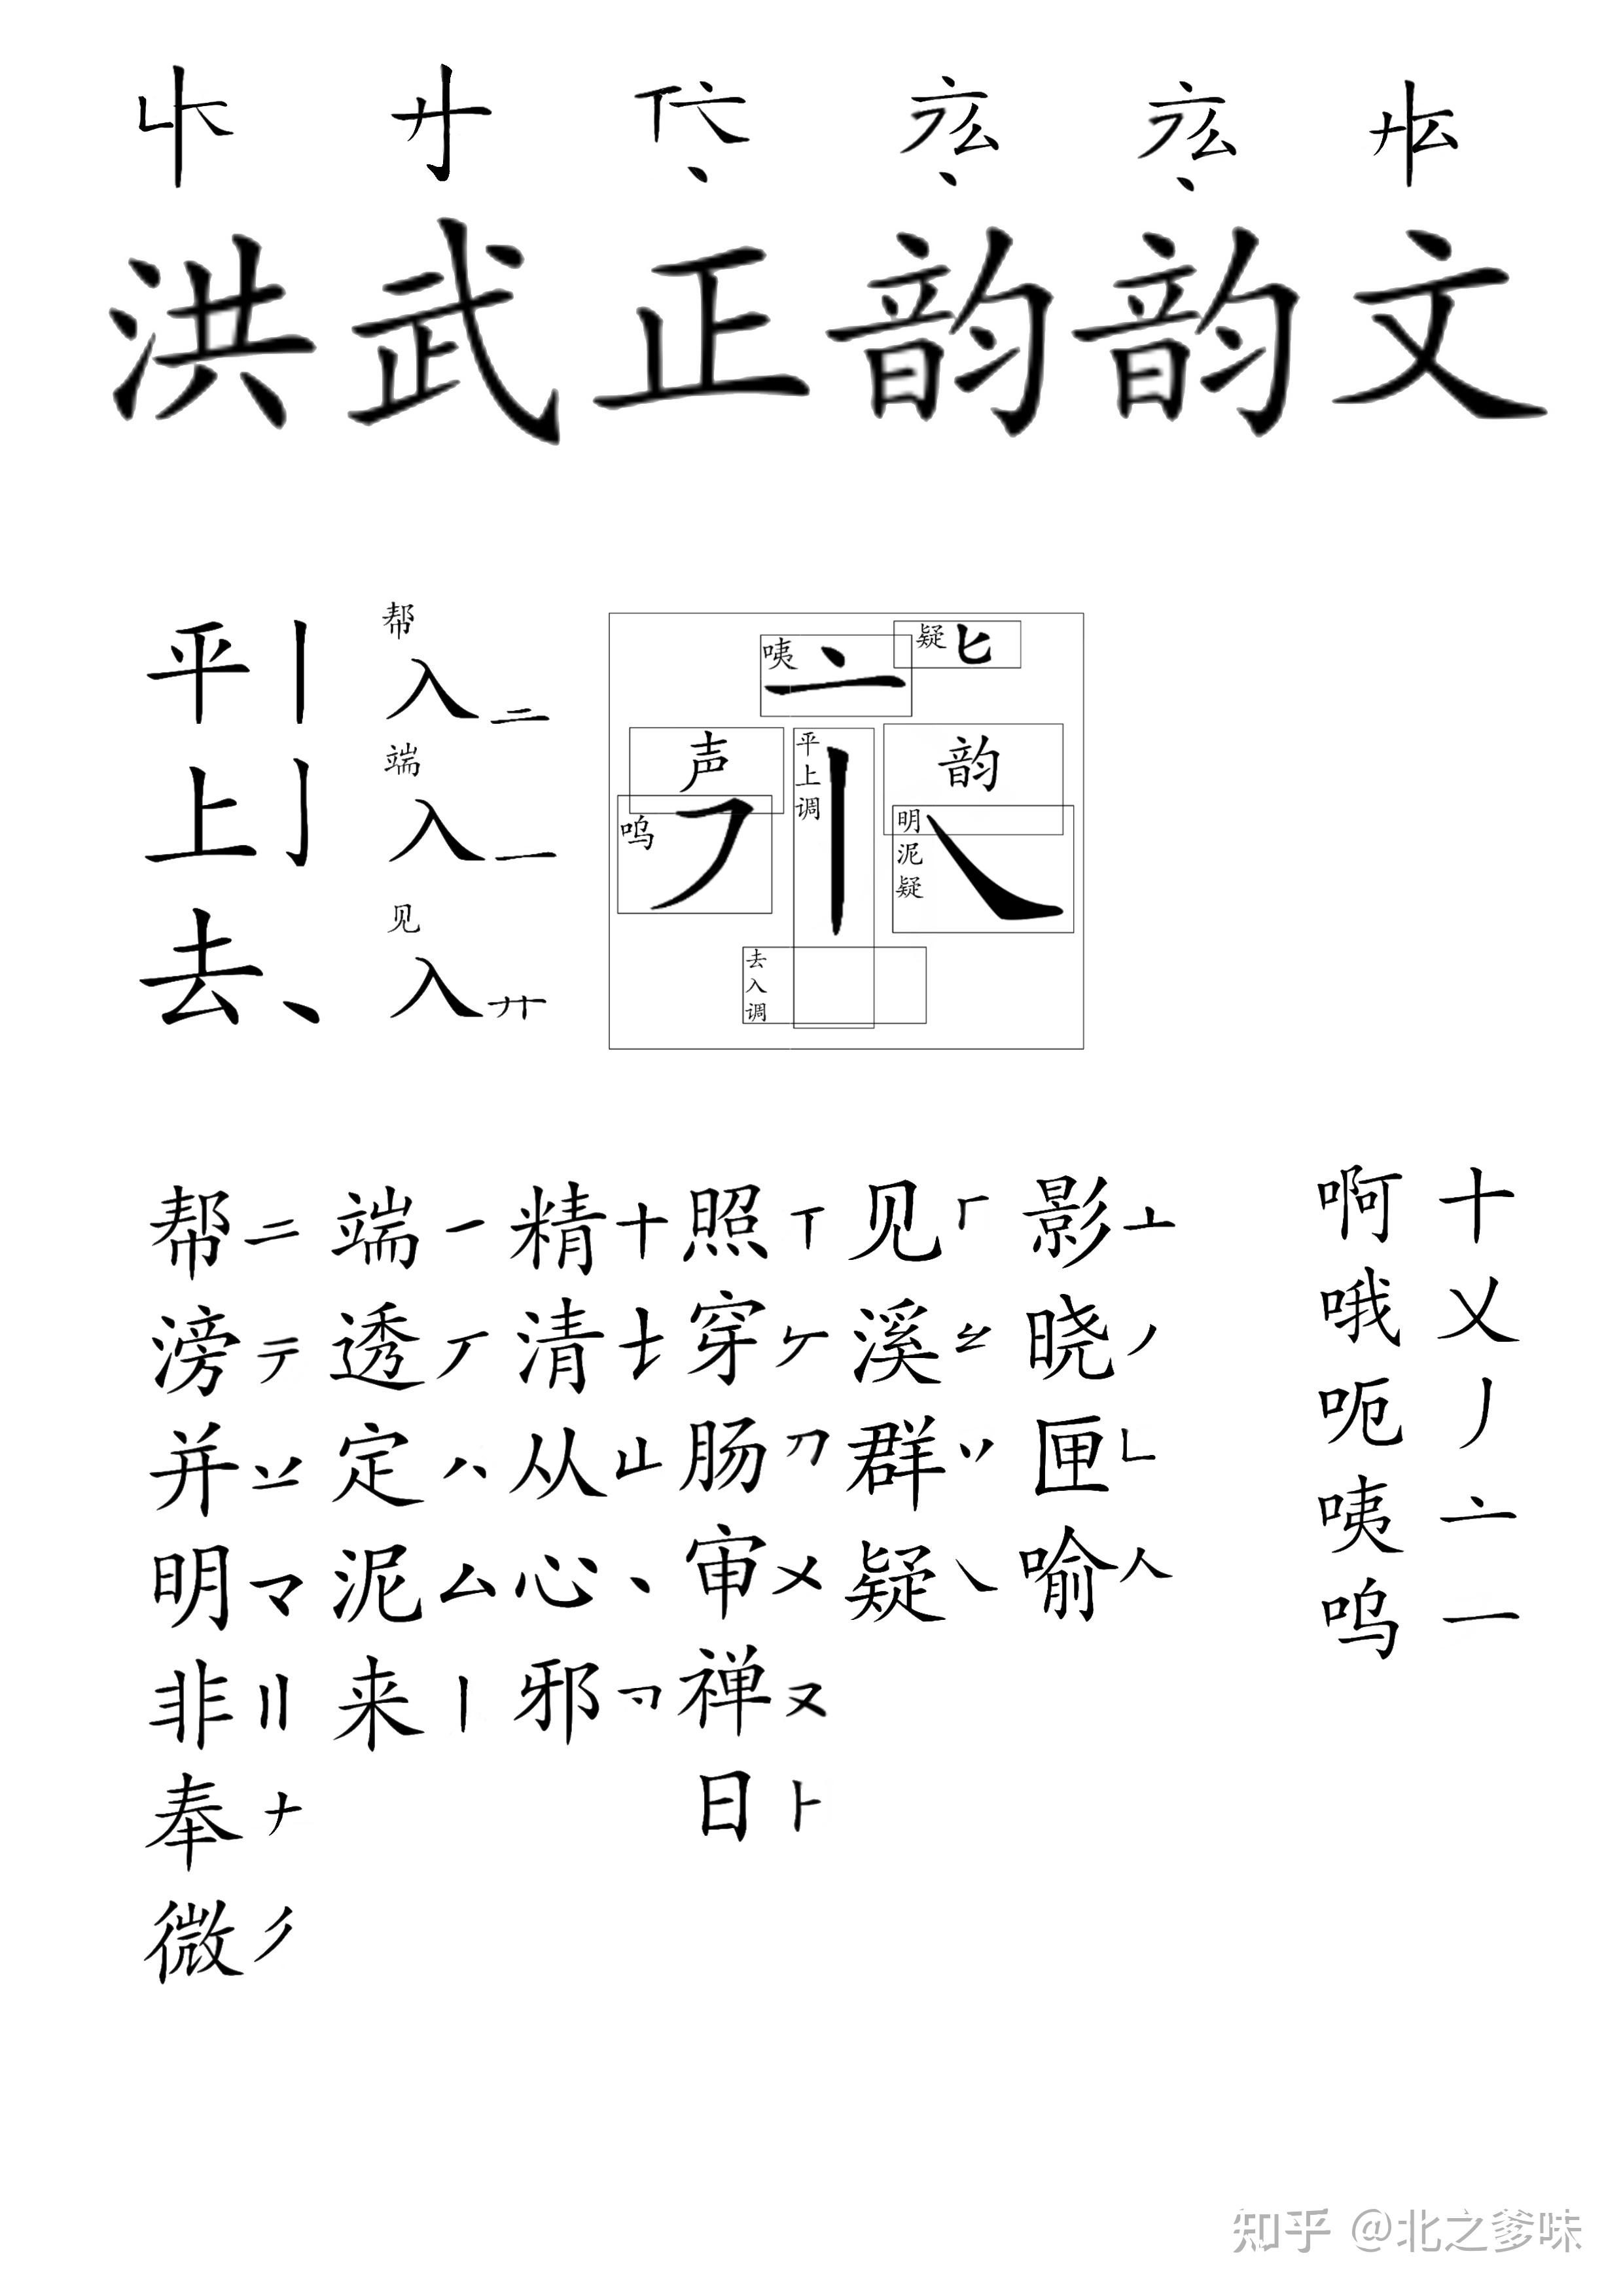 洪武正韵韵文
平 丨 帮 入 二
上 亅 端 入 一
去 丶 见 入 廾
咦 亠 疑 匕
声 平上调 韵
呜 丆 丨 明泥疑 ㇏
去入调
帮 二 端 一 精 十 照 丅 见 厂 影 亠 啊 十
滂 亍 透 丆 清 穿 𠂉 溪 晓 丿 哦 乂
并 定 八 从 山 肠 刀 群 丷 匣 𠃊 呃 丿
明 マ 泥 厶 心 丶 审 㐅 疑 ㇏ 喻 人 咦 亠
非 〢 来 丨 邪 禅 ヌ 呜 一
奉 ナ 日 ト
微 彡
知乎 @北之爹味